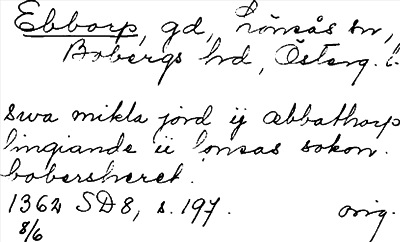 Ebborp, gd, Lönsås sn,
Bobergs hd, Österg. l.
swa mikla jord ij æbbathorp
lingiande ii lønsas sokon.
bobersheret.
1362 SD8, s. 197. orig.
8/6